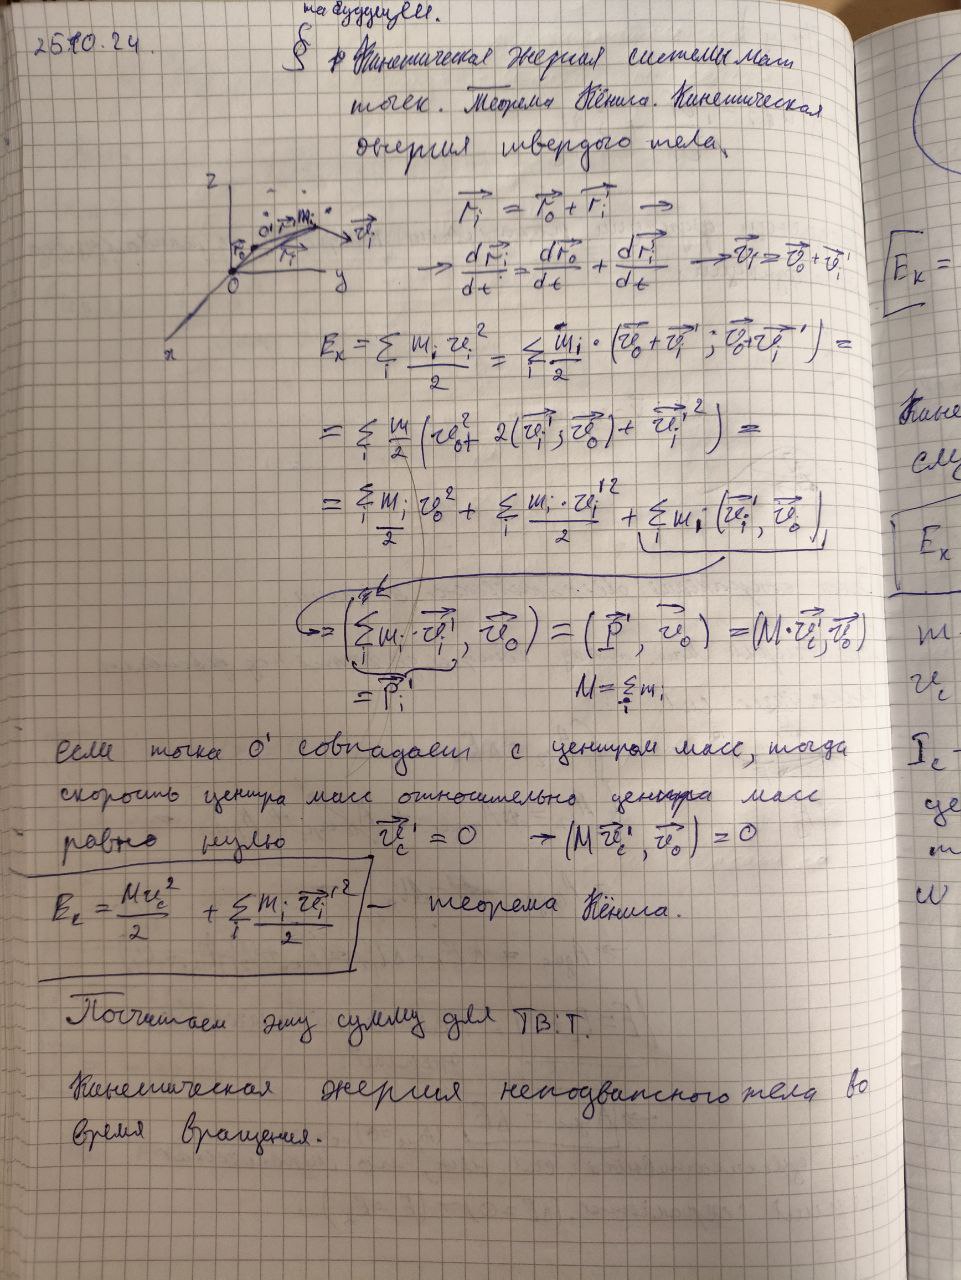 на будущем.
25.10.24.
§ Кинетическая энергия системы мат
точек. Теорема Кёнига. Кинетическая
энергия твердого тела.
z O' r⃗i' mi
r⃗0 r⃗i v⃗i
O y
x
r⃗i = r⃗0 + r⃗i' →
→ dr⃗i/dt = dr⃗0/dt + dr⃗i'/dt → v⃗i = v⃗0 + v⃗i'
Eк = Σi mi vi²/2 = Σi mi/2 · (v⃗0 + v⃗i' ; v⃗0 + v⃗i') =
= Σi m/2 (v0² + 2(v⃗i' ; v⃗0) + v⃗i'²) =
= Σi mi/2 v0² + Σi mi · vi'²/2 + Σi mi (v⃗i', v⃗0)
= (Σi mi · v⃗i', v⃗0) = (P⃗', v⃗0) = (M · v⃗c', v⃗0)
= P⃗i' M = Σi mi
если точка O' совпадает с центром масс, тогда
скорость центра масс относительно центра масс
равно нулю v⃗c' = 0 → (M v⃗c', v⃗0) = 0
Eк = Mvc²/2 + Σi mi v⃗i'²/2 — теорема Кёнига.
Посчитаем эту сумму для ТВ.Т.
Кинетическая энергия неподвапсного тела во
время вращения.
Eк =
Кине
слу
Eк
m -
vc
Ic -
це
m
w